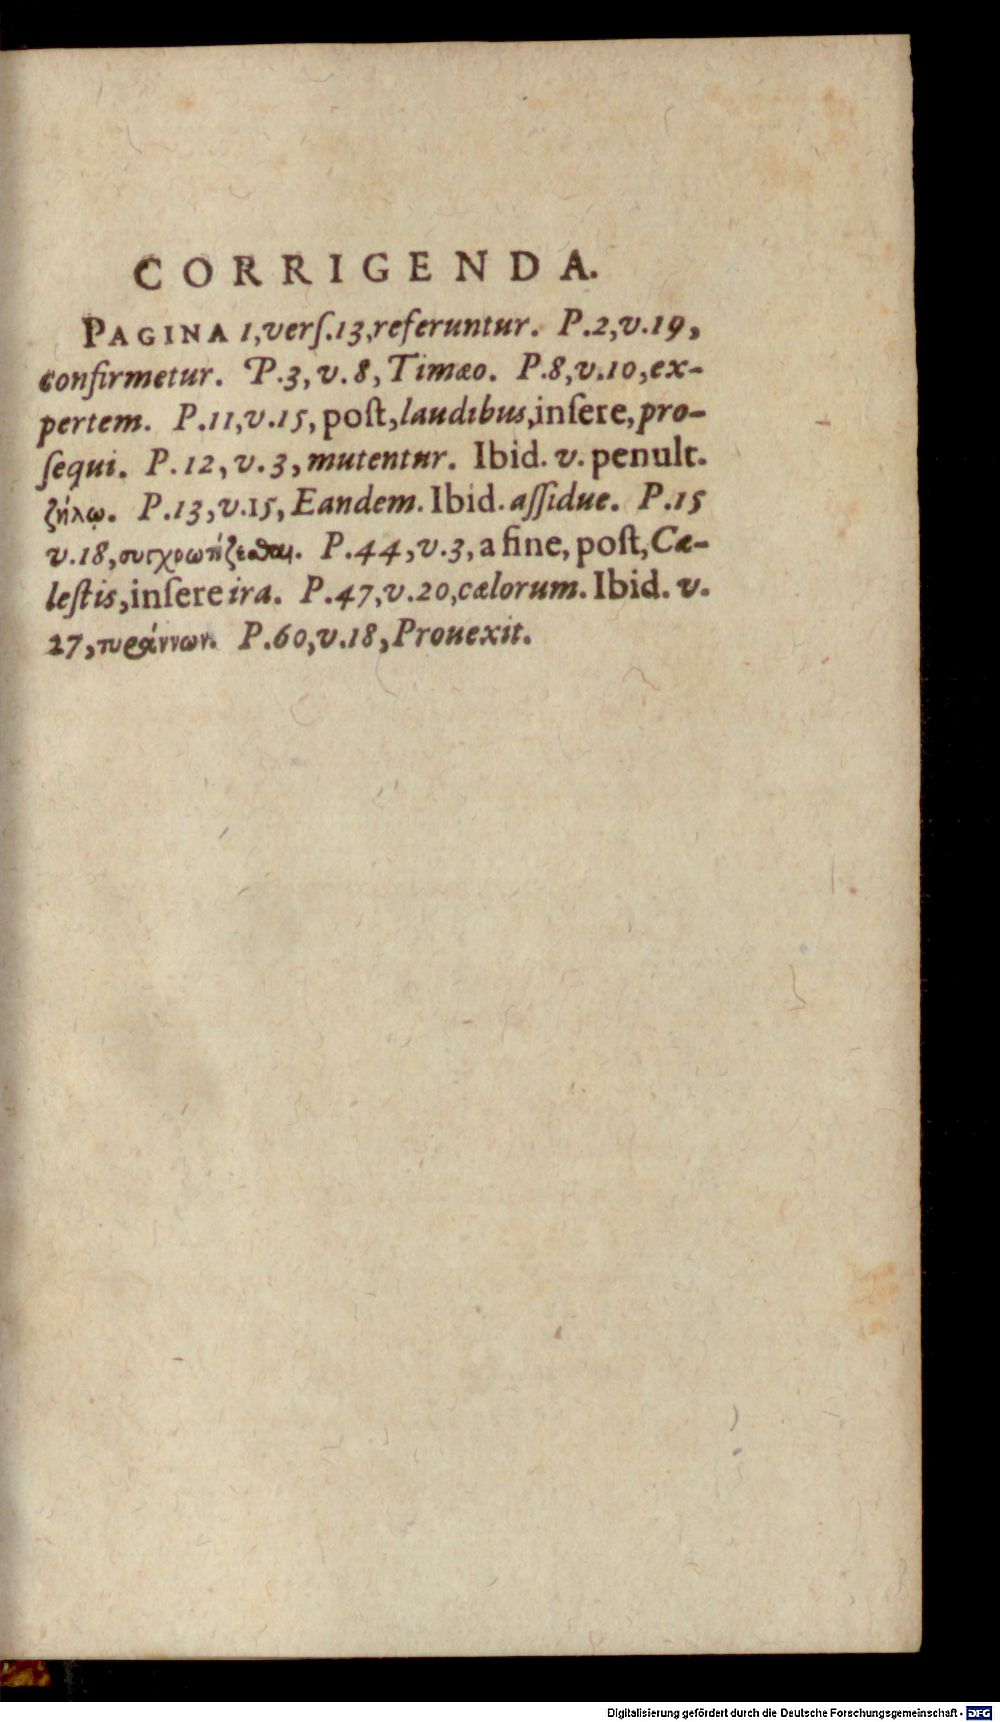 CORRIGENDA.
PAGINA 1,verſ.13,referuntur. P.2,v.19,
confirmetur. P.3,v.8,Timæo. P.8,v.10,ex-
pertem. P.11,v.15,poſt,laudibus,inſere,pro-
ſequi. P.12,v.3,mutentur. Ibid. v. penult.
ζήλῳ. P.13,v.15,Eandem. Ibid. aſſidue. P.15
v.18, P.44,v.3, a fine, poſt,Cæ-
leſtis,inſere ira. P.47,v.20,cælorum. Ibid. v.
27,τυράννων. P.60,v.18,Prouexit.
Digitalisierung gefördert durch die Deutsche Forschungsgemeinschaft - DFG